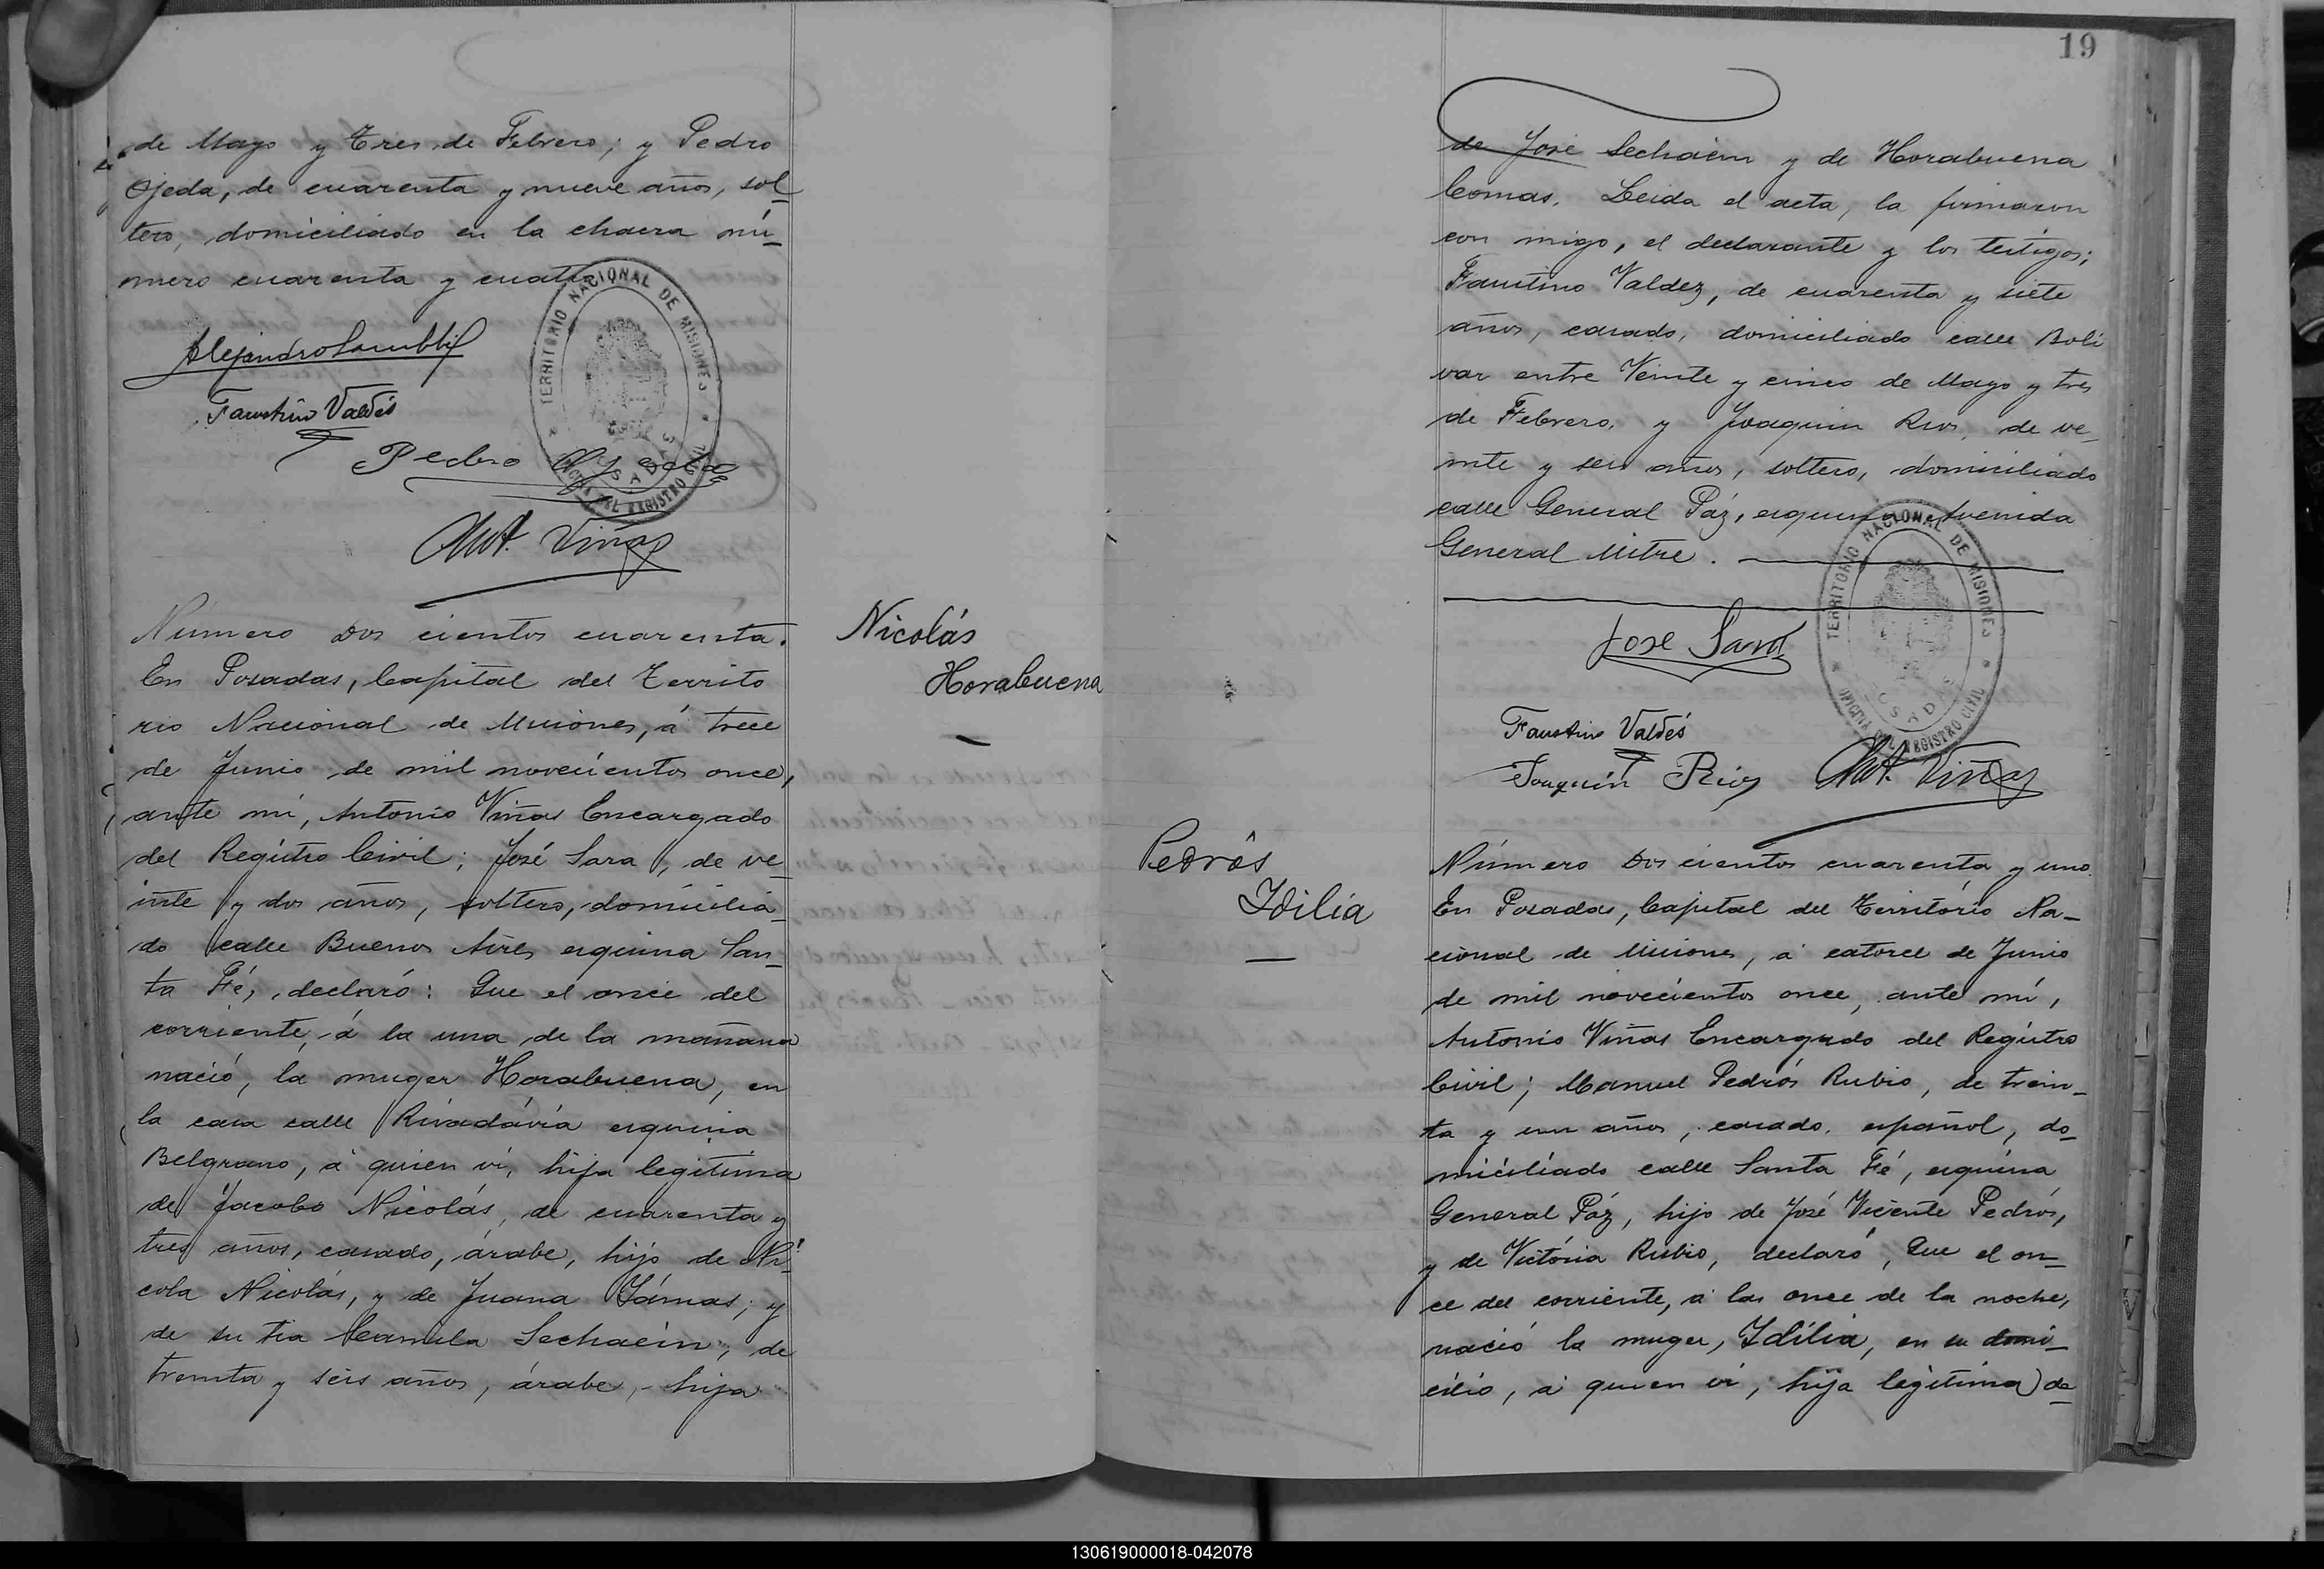 de Mayo y Tres de Febrero; y Pedro
Ojeda, de cuarenta y nueve años, sol-
tero, domiciliado en la chacra nú-
mero cuarenta y cuatro
TERRITORIO NACIONAL DE MISIONES
OFICINA DEL REGISTRO CIVIL
POSADAS
Alejandro
Faustino Valdés
Pedro Ojeda
Ant. Viñas
Número Dos cientos cuarenta.
En Posadas, Capital del Territo
rio Nacional de Misiones, á trece
de Junio de mil novecientos once,
ante mí, Antonio Viñas Encargado
del Registro Civil; José Sara, de ve-
inte y dos años, soltero, domicilia-
do calle Buenos Aires esquina San-
ta Fé, declaró: Que el once del
corriente, á la una de la mañana
nació, la muger Horabuena, en
la casa calle Rivadávia esquina
Belgrano, á quien ví, hija legitima
de Jacobo Nicolás, de cuarenta y
tres años, casado, árabe, hijo de Ni-
cola Nicolás, y de Juana Támas; y
de su tia Camila Sechaein; de
treinta y seis años, árabe, hija
Nicolás
Horabuena
19
de José Sechaein y de Horabuena
Comas. Leida el acta, la firmaron
con migo, el declarante y los testigos;
Faustino Valdez, de cuarenta y siete
años, casado, domiciliado calle Boli
var entre Veinte y cinco de Mayo y tres
de Febrero, y Joaquin Rios, de ve-
inte y seis años, soltero, domiciliado
calle General Páz, esquina Avenida
General Mitre.
TERRITORIO NACIONAL DE MISIONES
OFICINA DEL REGISTRO CIVIL
POSADAS
José Sara
Faustino Valdés
Joaquín Rios Ant. Viñas
Pedrós
Idilia
Número Dos cientos cuarenta y uno.
En Posadas, Capital del Territorio Na-
cional de Misiones, á catorce de Junio
de mil novecientos once, ante mí,
Antonio Viñas Encargado del Registro
Civil; Manuel Pedrós Rubio, de trein-
ta y un años, casado, español, do-
miciliado calle Santa Fé, esquina
General Páz, hijo de José Vicente Pedrós,
y de Victória Rubio, declaró, Que el on-
ce del corriente, á las once de la noche,
nació la muger, Idilia, en su domi-
cilio, á quien ví, hija legitima de
130619000018-042078